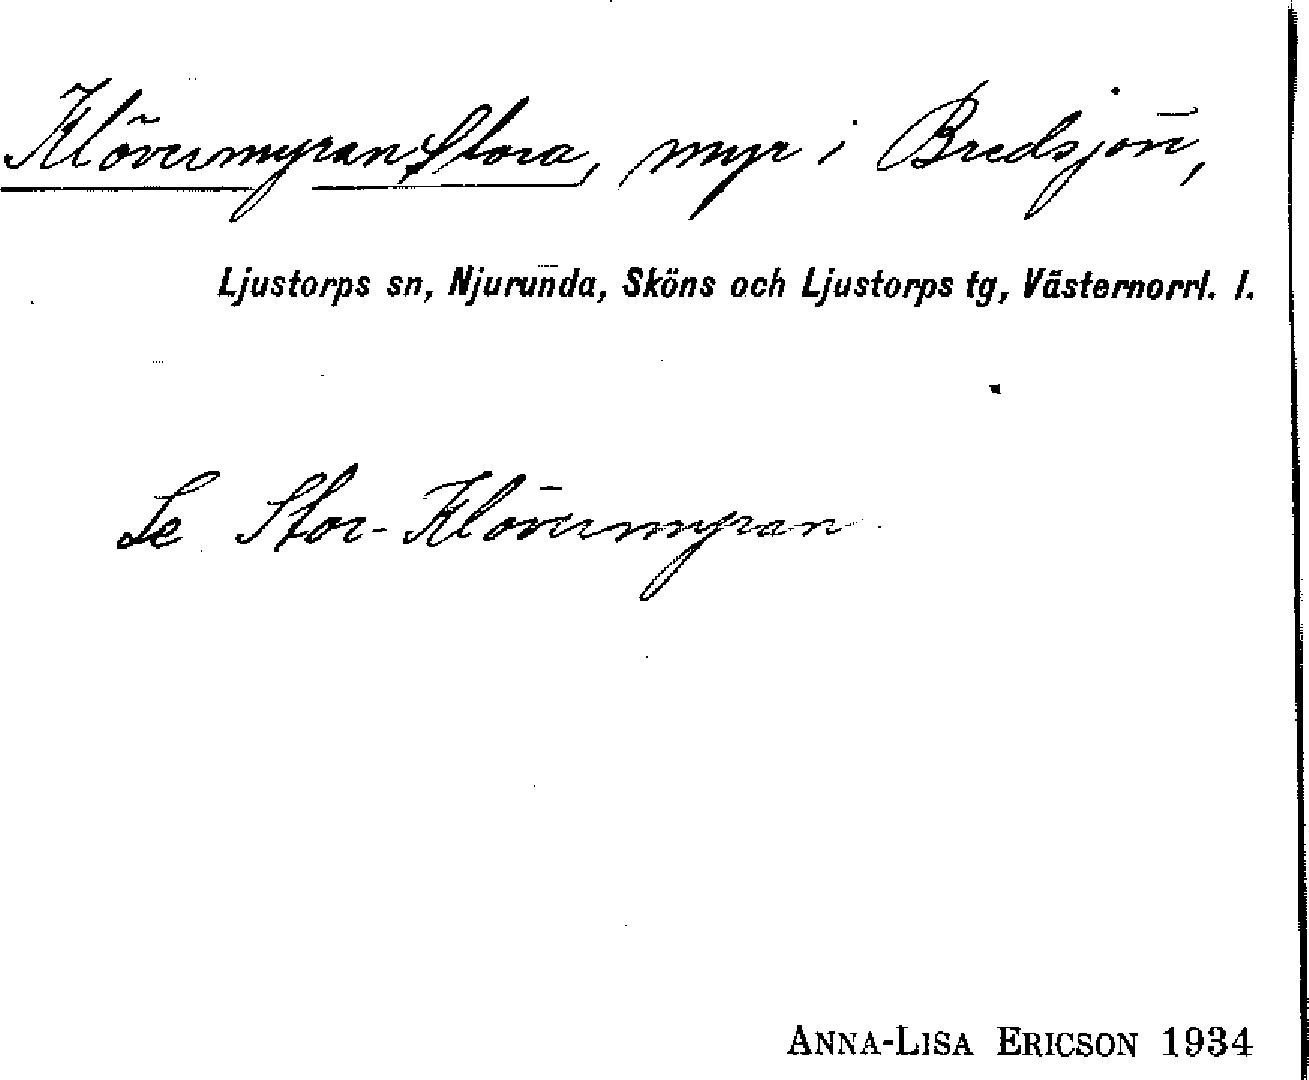 Klövermyran, Stora, myr i Bredsjön,
Ljustorps sn, Njurunda, Sköns och Ljustorps tg, Västernorrl. l.
Se Stor-Klövermyran
ANNA-LISA ERICSON 1934